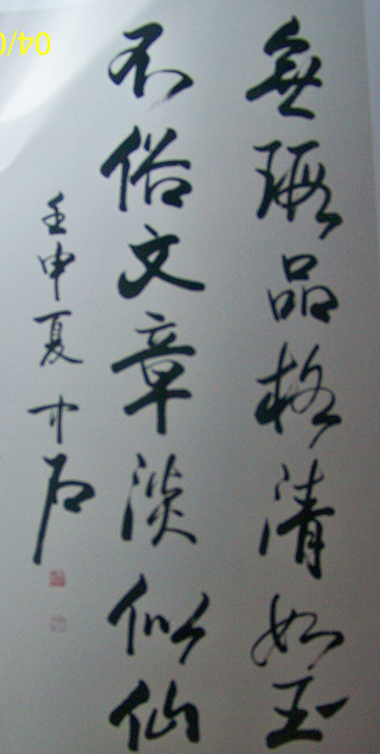 無瑕品格清如玉
不俗文章淡似仙
壬申夏 中石
04/0